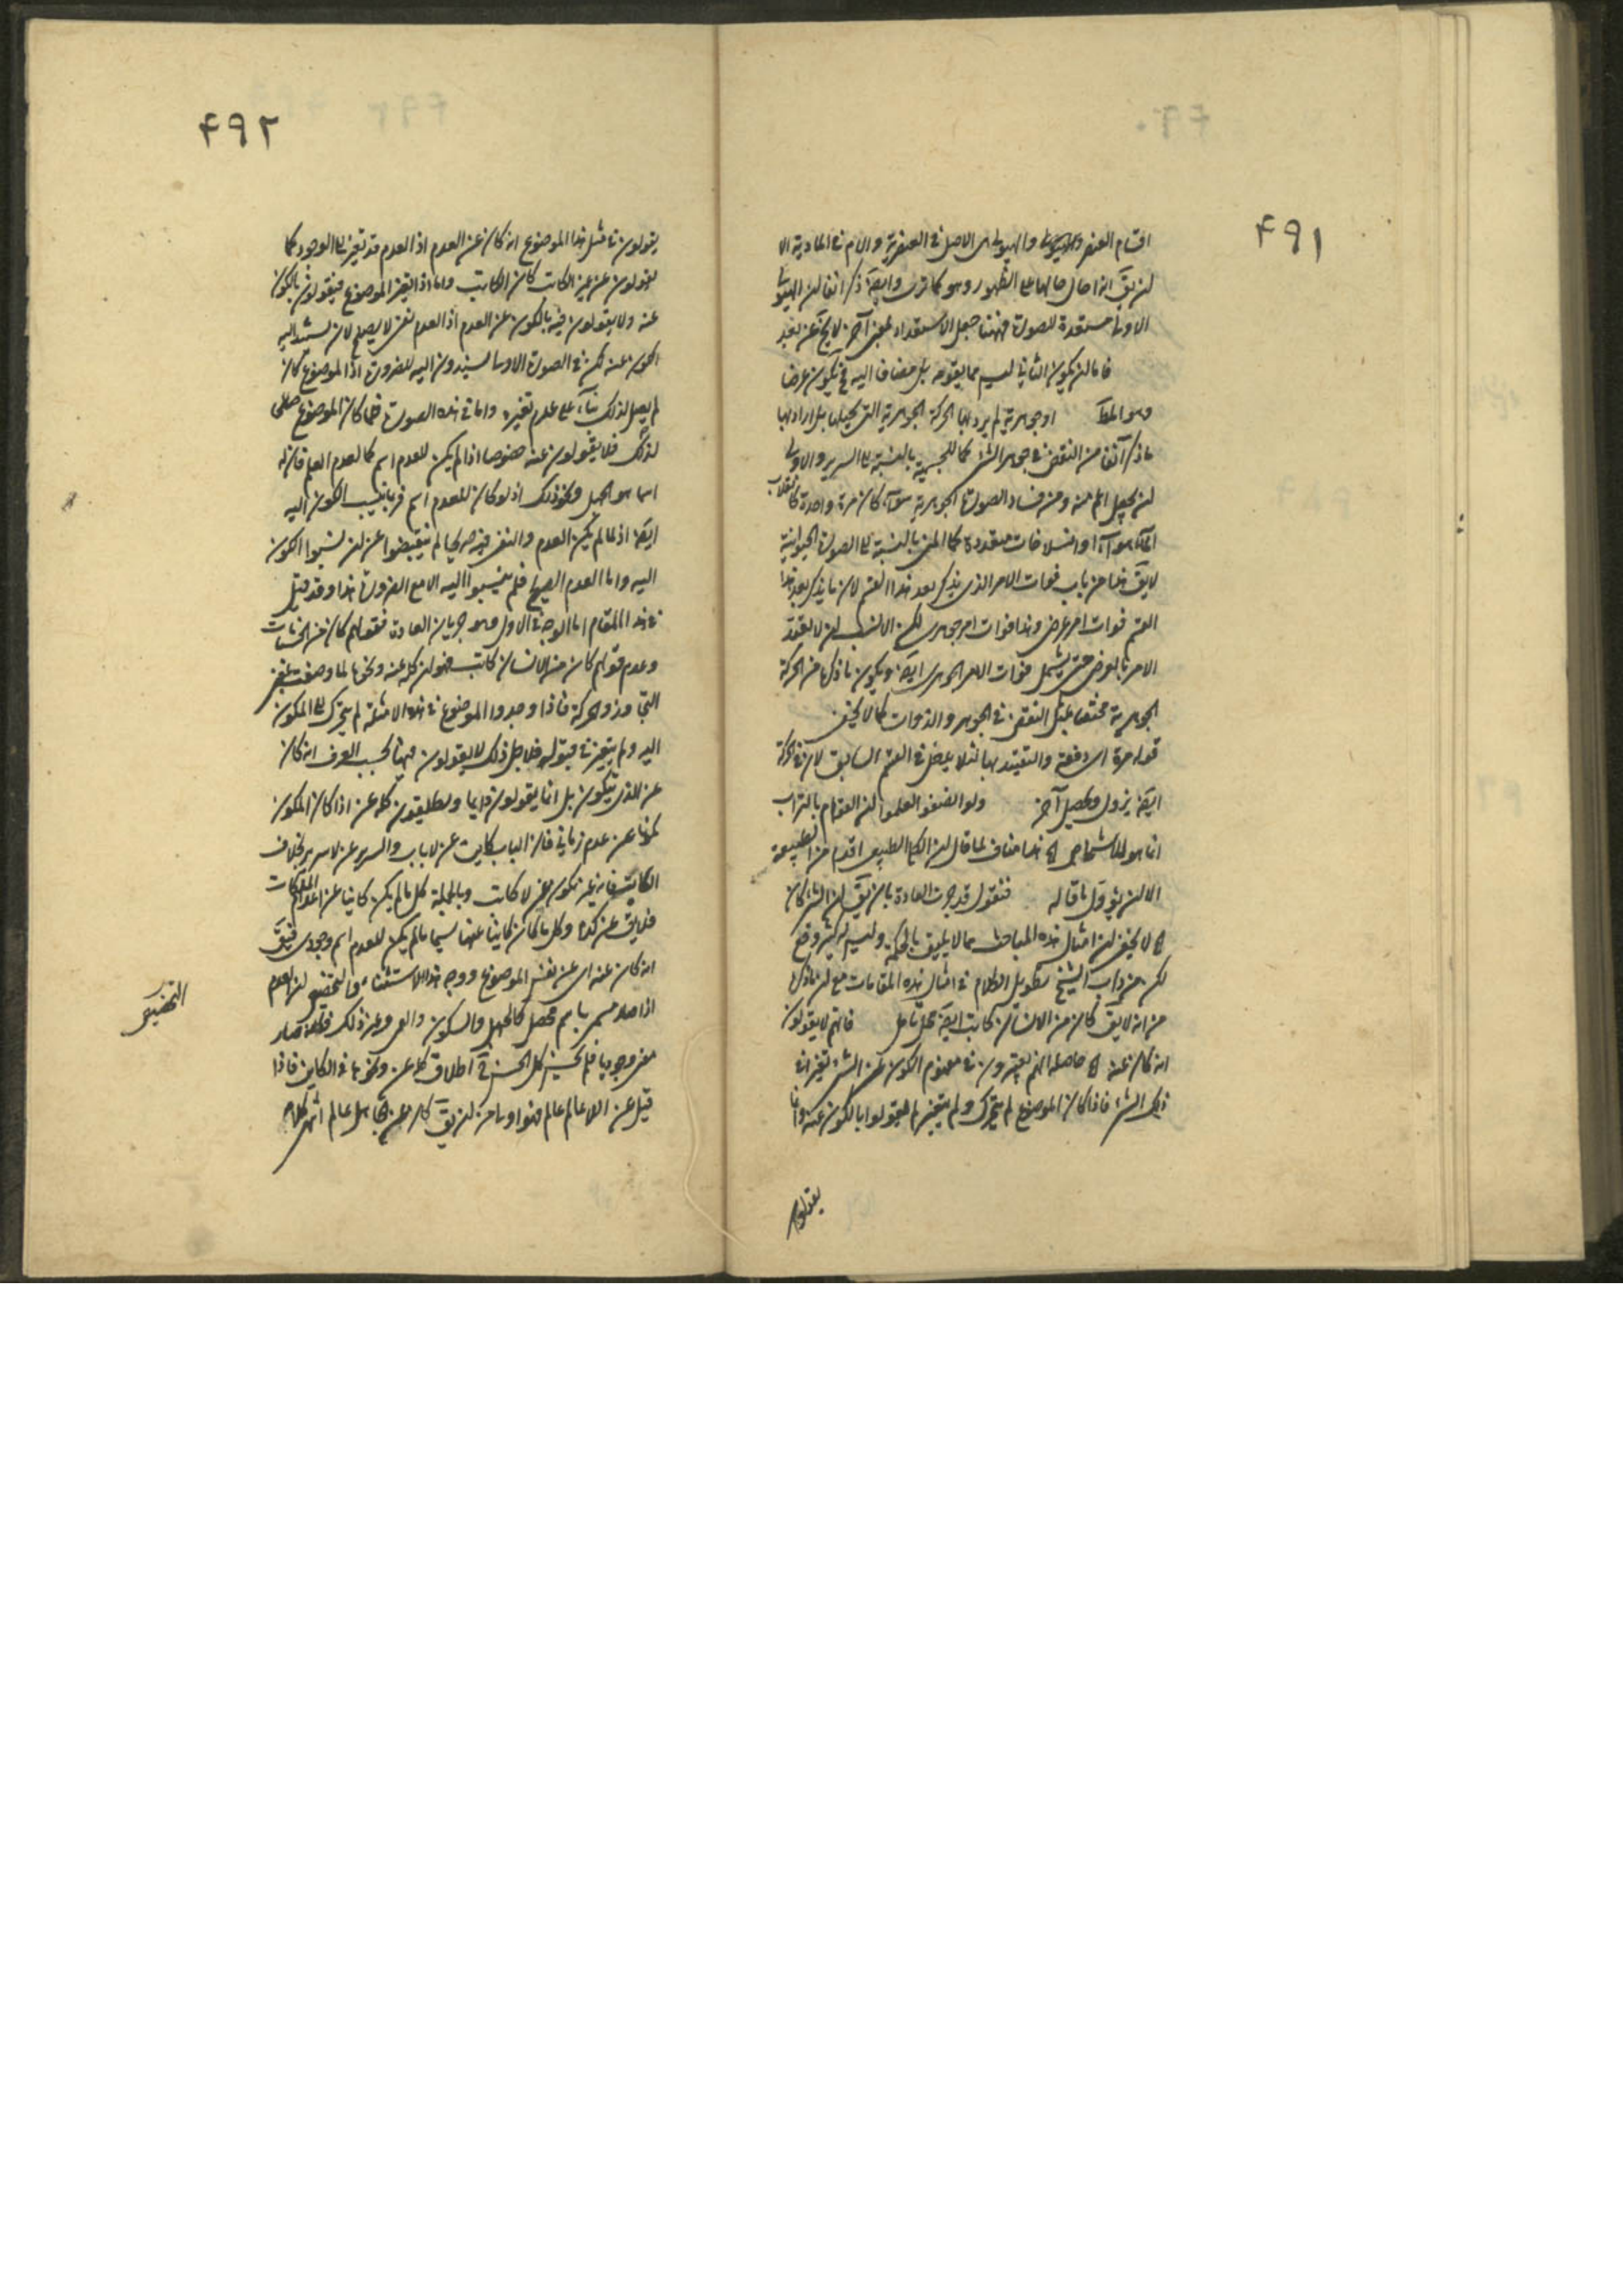 ۴۹۱
اقسام العنصر والهيولى والهيولى هى الاصل فى العنصرية والام فى المادية الا
لن يق انه احال حالها على الظهور وهو كما ترى وايضا ذكر آنفا لن الهيولى
الاولى مستعدة للصورة فههنا جعل الاستعداد لمعنى آخر لا يخ عن بعد
فاما لن يكون الثانى ليس مما يقومه بل مضاف اليه فح يكون عرضا
وهو المط او جوهرية لم يرد بها الحركة الجوهرية التى يحيلها بل اراد بها
ما ذكر آنفا من النقص فى جوهر الشئ كما للخشبية بالنسبة الى السرير والاولى
لن يجعل اعم منه ومن فساد الصورة الجوهرية سواء كان مرة واحدة كانقلاب
الماء هواء او انسلاخات متعددة كما للمنى بالنسبة الى الصورة الحيوانية
لا يق هذا من باب فوات الامر الذى يذكر بعد هذا القسم لان ما يذكر بعد هذا
القسم فوات امر عرضى وهذا فوات امر جوهرى لكن الانسب لن لا يقيد
الامر بالعرضى حتى يشمل فوات الامر الجوهرى ايضا ويكون ما ذكره من الحركة
الجوهرية مختصا بمثل النقص فى الجوهر والذوات كما لا يخفى
قوله مرة اى دفعة والتقييد بها لئلا يدخل فى القسم السابق لان فى الحركة
ايضا يزول ويحصل آخر ولو انصفوا لعلموا لن القوام بالتراب
انما هو للاشخاص اه هذا مناف لما قال لن الكم الطبيعى اقدم من الطبيعة
الا لن يؤول ما قاله فنقول قد جرت العادة بان يق لن الشئ كان
اه لا يخفى لن امثال هذه المباحث مما لا يليق بالحكمة وليس له كثير وقع
لكن من داب الشيخ تطويل الكلام فى امثال هذه المقامات مع لن ما ذكره
من انه لا يق كان من الانسان كاتب ايضا محل تامل فانهم لا يقولون
انه كان عنه اه حاصله انهم يعتبرون فى مفهوم الكون عن الشئ تغيرا فى
ذلك الشئ فاذا كان الموضوع لم يتحرك ولم يتغير لم يقولوا بالكون عنه وانما
يقولون
۴۹۲
يقولون فى مثل هذا الموضوع انه كان عن العدم اذ العدم قد تغير الى الوجود كما
يقولون عن غير الكاتب كان الكاتب واما اذا تغير الموضوع فيقولون بالكون
عنه ولا يقولون فيه بالكون عن العدم اذ العدم نفى لا يصلح لان يستند اليه
الكون عنه لكن فى الصورة الاولى يسندون اليه للضرورة اذ الموضوع كان
لم يصلح لذلك بناء على عدم تغيره واما فى هذه الصورة فلما كان الموضوع صالحا
لذلك فلا يقولون عنه خصوصا اذا لم يكن للعدم اسم كالعدم العلم فان له
اسما هو الجهل ونحو ذلك اذ لو كان للعدم اسم فربما ينسب الكون اليه
ايضا اذ لما لم يكن العدم والنفى فيه صريحا لم ينقبضوا عن لن ينسبوا الكون
اليه واما العدم الصريح فلم ينسبوا اليه الا مع الضرورة هذا وقد قيل
فى هذا المقام اما الوجه فى الاول وهو جريان العادة فقولهم كان من الخشبات
وعدم قولهم كان من الانسان كاتب فهو لن كلمة عنه ونحوها لما وضعت بمعنى
التجاوز والحركة فاذا وجدوا الموضوع فى هذه الامثلة لم يتحرك الى المكون
اليه ولم يتغير فى قبوله فلاجل ذلك لا يقولون فيها بحسب العرف انه كان
عن الذى يتكون بل انما يقولون دايما ويطلقون كلمة عن اذا كان المكون
مكونا عن عدم زمانى فان الباب كاين عن لا باب والسرير عن لا سرير بخلاف
الكاتب فانه غير مكون عن لا كاتب وبالجملة كل ما لم يكن كاينا عن اعدام الملكات
فلا يق عن كذا وكل ما كان كاينا عنها سيما ما لم يكن للعدم اسم وجودى فيق
انه كان عنه اى عن نفس الموضوع ووجه هذا الاستثناء والتخصيص لن العدم
اذا صار مسمى باسم محصل كالجهل والسكون والعمى وغير ذلك فكانه صار
معنى وجوديا فلم يحسن كل الحسن فى اطلاق كلمة عن ونحوها فى الكاين فاذا
قيل عن اللاعالم عالم فهو اولى من لن يق كان عن جاهل عالم انتهى كلامه
التخصيص